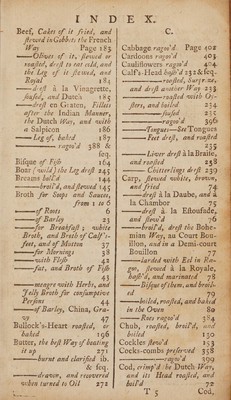 INDEX.
Beef, Cakes of it fried, and
stewed in Gobbets the French
Way Page 183
—Olives of it, stewed or
roasted, drest to eat cold, and
the Leg of it stewed, and
Royal 184
—drest à la Vinagrette,
stufed, and Dutch 185
—drest en Graten, Fillets
after the Indian Manner,
the Dutch Way, and with
a Salpicon 186
—Leg of, baked 187
—ragou'd 388 &
seq.
Bisque of Fish 164
Boar (wild) the Leg drest 245
Breams bak'd 144
—broil'd, and stewed 145
Broth for Soups and Sauces,
from 1 to 6
—of Roots 6
—of Barley 23
—for Breakfast; white
Broth, and Broth of Calf's-
feet, and of Mutton 37
—for Mornings 38
—with Flesh 42
—fat, and Broth of Fish
43
—meagre with Herbs, and
Jelly Broth for consumptive
Persons 44
—of Barley, China, Gra-
vy 47
Bullock's-Heart roasted, or
baked 196
Butter, the best Way of beating
it up 271
—burnt and clarified ib.
& seq.
—drawn, and recovered
when turned to Oil 272
C.
Cabbage ragou'd Page 402
Cardoons ragou'd 403
Cauliflowers ragou'd 404
Calf's-Head hash'd 232 & seq.
—roasted, Surprize,
and drest another Way 233
—roasted with Oy-
sters, and boiled 234
—stufed 235
—ragou'd 396
—Tongues—See Tongues
—Feet drest, and roasted
235
—Liver drest à la Braise,
and roasted 238
—Chitterlings drest 239
Carp, stewed whole, brown,
and fried 74
—drest à la Daube, and à
la Chambor 75
—drest à la Estoufade,
and stew'd 76
—broil'd, drest the Bohe-
mian Way, au Court Bou-
illon, and in a Demi-court
Bouillon 77
—larded with Eel in Ra-
gou, stewed à la Royale,
hash'd, and marinated 78
—Bisque of them, and broil-
ed 79
—boiled, roasted, and baked
in the Oven 80
—Roes ragou'd 384
Chub, roasted, broil'd, and
boiled 150
Cockles stew'd 153
Cocks-combs preserved 358
—ragou'd 399
Cod, crimp'd the Dutch Way,
and its Head roasted, and
boil'd 72
T 5 Cod,